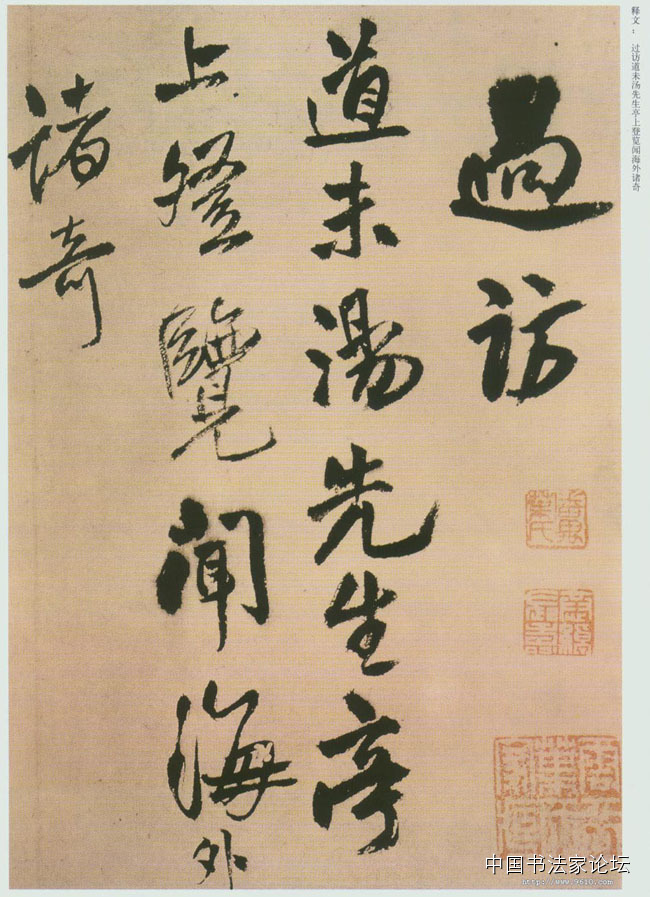 释文：过访道未汤先生亭上登览闻海外诸奇
過訪
道未湯先生亭
上登覽聞海外
諸奇
中国书法家论坛
http://www.9610.com/